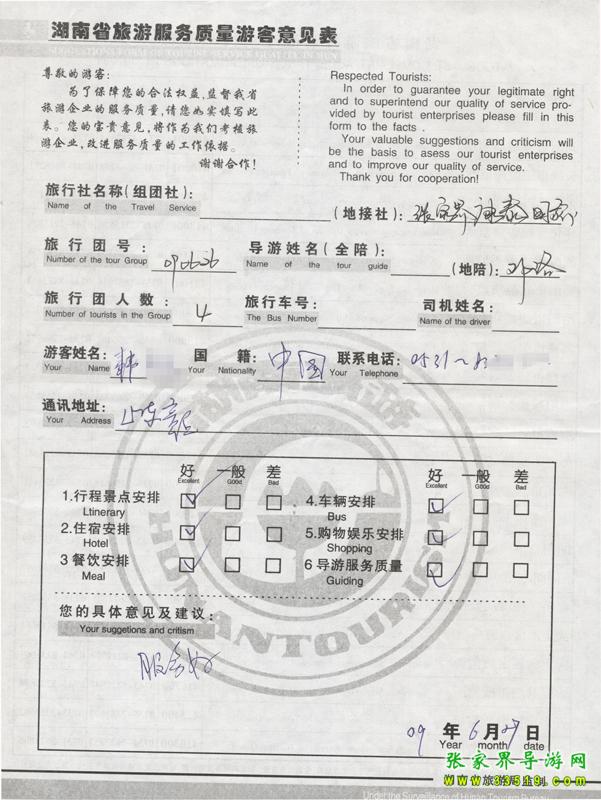 湖南省旅游服务质量游客意见表
尊敬的游客:
为了保障您的合法权益,监督我省
旅游企业的服务质量,请您如实填写此
表。您的宝贵意见,将作为我们考核旅
游企业,改进服务质量的工作依据。
谢谢合作!
Respected Tourists:
In order to guarantee your legitimate right
and to superintend our quality of service pro-
vided by tourist enterprises please fill in this
form to the facts .
Your valuable suggestions and criticism will
be the basis to asess our tourist enterprises
and to improve our quality of service.
Thank you for cooperation!
旅行社名称(组团社): (地接社): 张家界康泰国旅
Name of the Travel Service
旅行团号: 090626 导游姓名(全陪): (地陪):
Number of the tour Group Name of the tour guide
旅行团人数: 4 旅行车号: 司机姓名:
Number of tourists in the Group The Bus Number Name of the driver
游客姓名: 韩 国籍: 中国 联系电话: 0531-8
Your Name Your Nationality Your Telephone
通讯地址: 山东章丘
Your Address
好 一般 差 好 一般 差
Excellent Good Bad Excellent Good Bad
1.行程景点安排 4.车辆安排
Ltinerary Bus
2.住宿安排 5.购物娱乐安排
Hotel Shopping
3 餐饮安排 6 导游服务质量
Meal Guiding
HUNAN TOURISM
您的具体意见及建议:
Your suggetions and critism
服务好
09 年 6 月 29 日
Year month date
张家界导游网
www.33519.com
旅游局监制
Under the Surveillance of Hunan Tourism Bureau